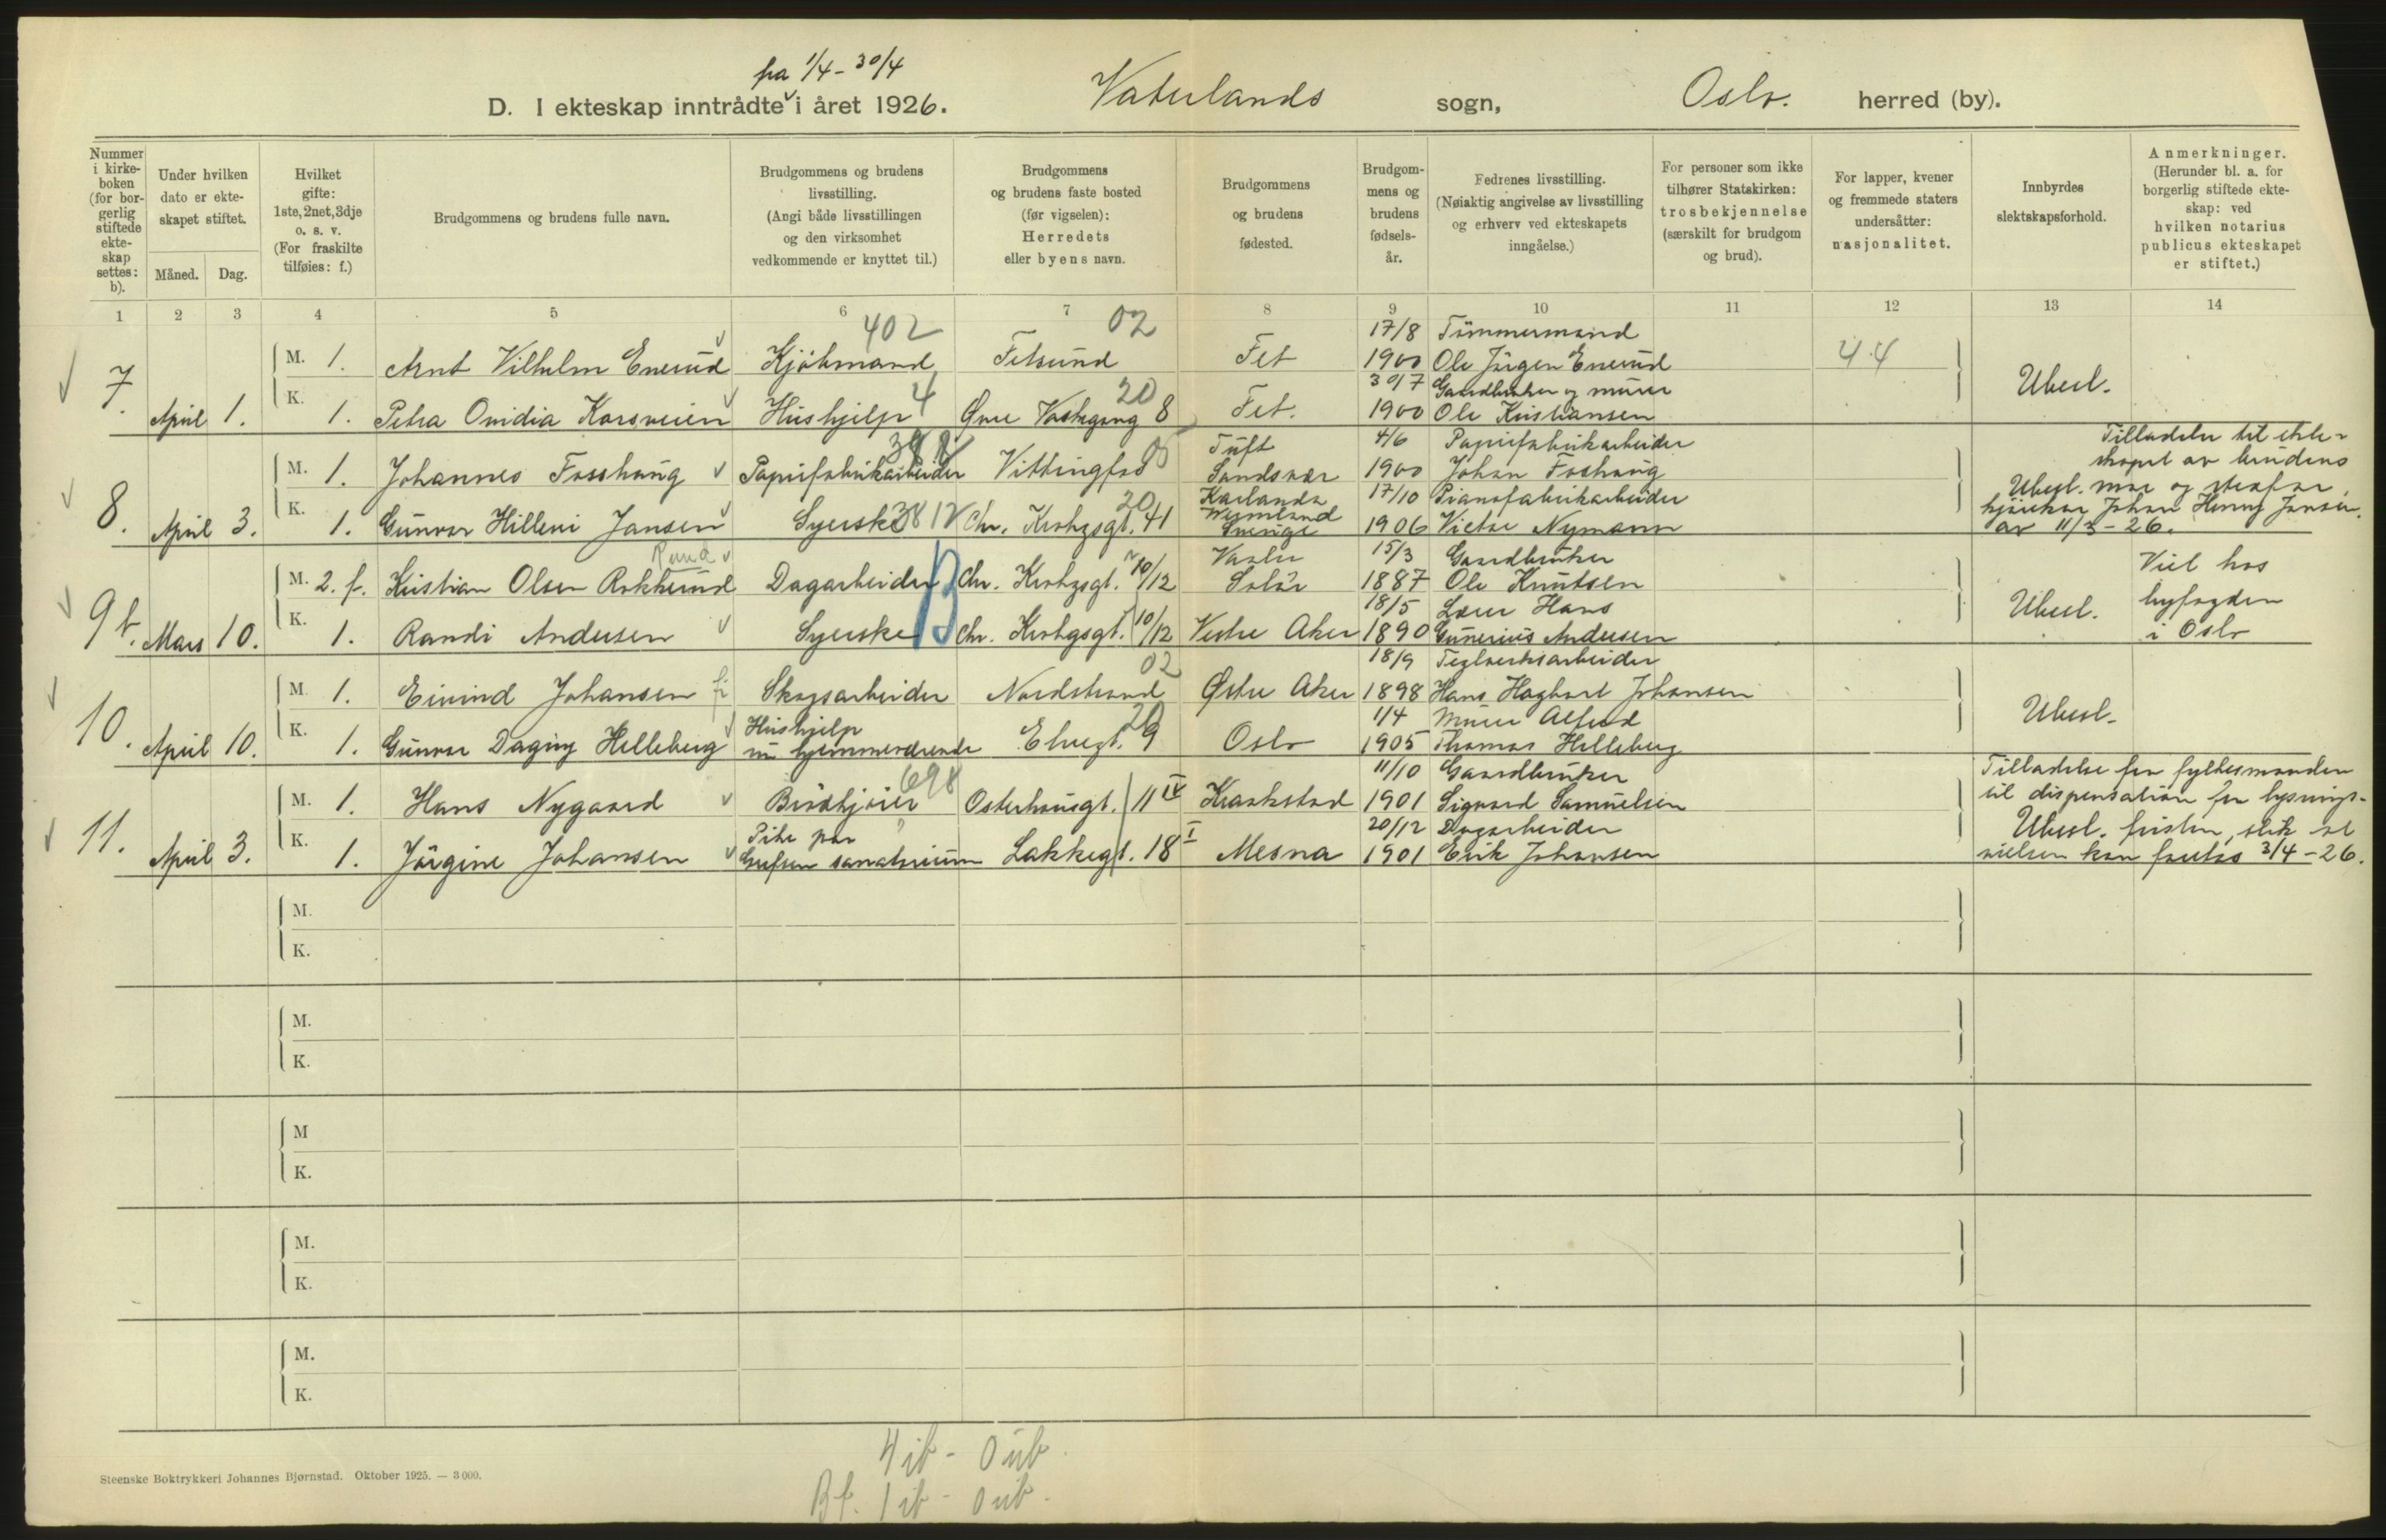 fra 1/4 - 30/4
D. I ekteskap inntrådte i året 1926. Vaterlands sogn, Oslo. herred (by).
Nummer i kirkeboken (for borgerlig stiftede ekteskap settes: b).
Under hvilken dato er ekteskapet stiftet.
Måned. Dag.
Hvilket gifte: 1ste, 2net, 3dje o. s. v. (For fraskilte tilføies: f.)
Brudgommens og brudens fulle navn.
Brudgommens og brudens livsstilling. (Angi både livsstillingen og den virksomhet vedkommende er knyttet til.)
Brudgommens og brudens faste bosted (før vigselen): Herredets eller byens navn.
Brudgommens og brudens fødested.
Brudgommens og brudens fødselsår.
Fedrenes livsstilling. (Nøiaktig angivelse av livsstilling og erhverv ved ekteskapets inngåelse.)
For personer som ikke tilhører Statskirken: trosbekjennelse (særskilt for brudgom og brud).
For lapper, kvener og fremmede staters undersåtter: nasjonalitet.
Innbyrdes slektskapsforhold.
Anmerkninger. (Herunder bl. a. for borgerlig stiftede ekteskap: ved hvilken notarius publicus ekteskapet er stiftet.)
1 2 3 4 5 6 7 8 9 10 11 12 13 14
402 02 17/8 Tömmermand
M. 1. Arnt Vilhelm Enerud Kjökmand Fetsund Fet 1900 Ole Jörgen Enerud 44
7. Ubesl.
4 20 30/7 Gaardbruker og murer
April 1. K. 1. Petra Ovidia Korsveien Hushjelp Øvre Vaskegang 8 Fet. 1900 Ole Kristiansen
05 Tuft 4/6 Papirfabrikarbeider Tilladelse til ekte-
M. 1. Johannes Fosshaug Papirfabrikarbeider Vittingfos Sandsvær 1900 Johan Foshaug skapet av brudens
8. 20 Karlanda 17/10 Pianofabrikarbeider Ubesl. mor og stefar,
Wermland
April 3. K. 1. Gunvor Hilleni Jansen Syerske 3812 Chr. Krohgsgt. 41 Sverige 1906 Victor Nymann
av 11/3 - 26.
Rund Vaaler 15/3 Gaardbruker Viet hos
M. 2. f. Kristian Olsen Rokkerud Dagarbeider Chr. Krohgsgt. 10/12 Solör 1887 Ole Knutsen byfogden
9b. 18/5 Lærer Hans Ubesl.
Mars 10. K. 1. Randi Andersen Syerske Chr. Krohgsgt. 10/12 Vestre Aker 1890 Gunerius Andersen i Oslo
02 18/9 Teglverksarbeider
M. 1. Eivind Johansen Skogsarbeider Nordstrand Østre Aker 1898 Hans Hagbart Johansen
10. Hushjelp 20 1/4 Murer Alfred Ubesl.
April 10. K. 1. Gunvor Dagny Helleberg nu hjemmeværende Elvegt. 9 Oslo 1905 Thomas Helleberg
698 11/10 Gaardbruker Tilladelse fra fylkesmanden
M. 1. Hans Nygaard Brödkjörer Osterhausgt. 11 IV Kraakstad 1901 Sigvard Samuelsen til dispensation fra lysnings-
11. Pike paa I 20/12 Dagarbeider Ubesl. fristen, slik at
April 3. K. 1. Jörgine Johansen Grefsen sanatorium Lakkegt. 18 Mesna 1901 Erik Johansen vielsen kan foretas 3/4 - 26.
M.
K.
M.
K.
M
K.
M.
K.
M.
K.
4 ib - 0 ub.
Bf. 1 ib - 0 ub.
Steenske Boktrykkeri Johannes Bjørnstad. Oktober 1925. — 3 000.